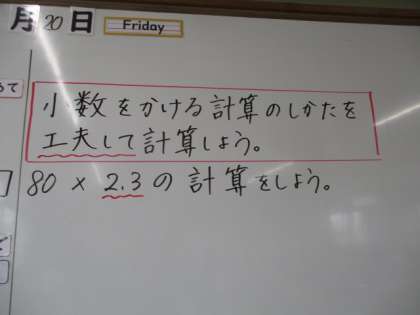 月20日 Friday
小数をかける計算のしかたを
工夫して計算しよう。
80 × 2.3の計算をしよう。